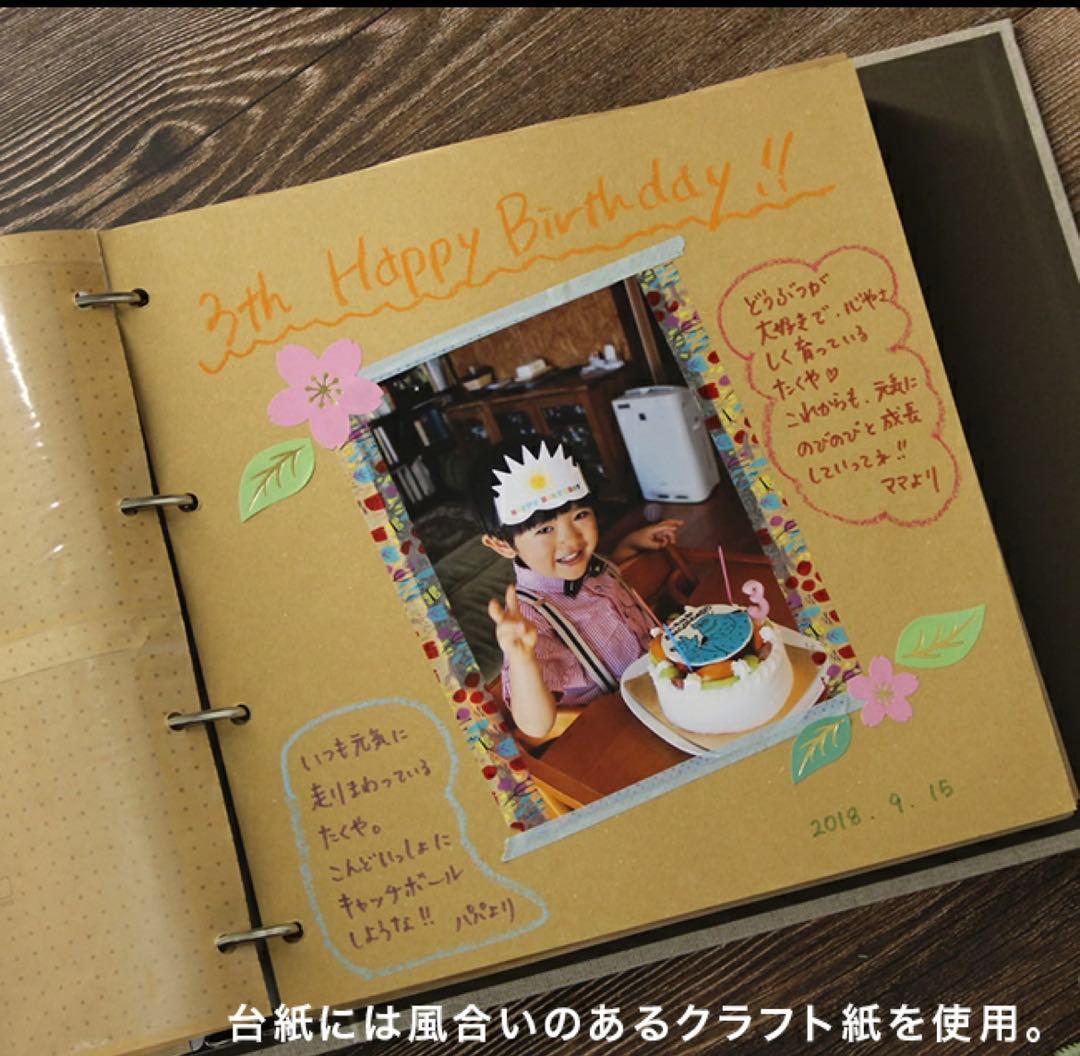 3th Happy Birthday!!
どうぶつが
大好きで、心やさ
しく育っている
たくや♡
これからも、元気に
のびのびと成長
していってネ!!
ママより
3
いつも元気に
走りまわっている
たくや。
こんどいっしょに
キャッチボール
しような!! パパより
2018.9.15
台紙には風合いのあるクラフト紙を使用。